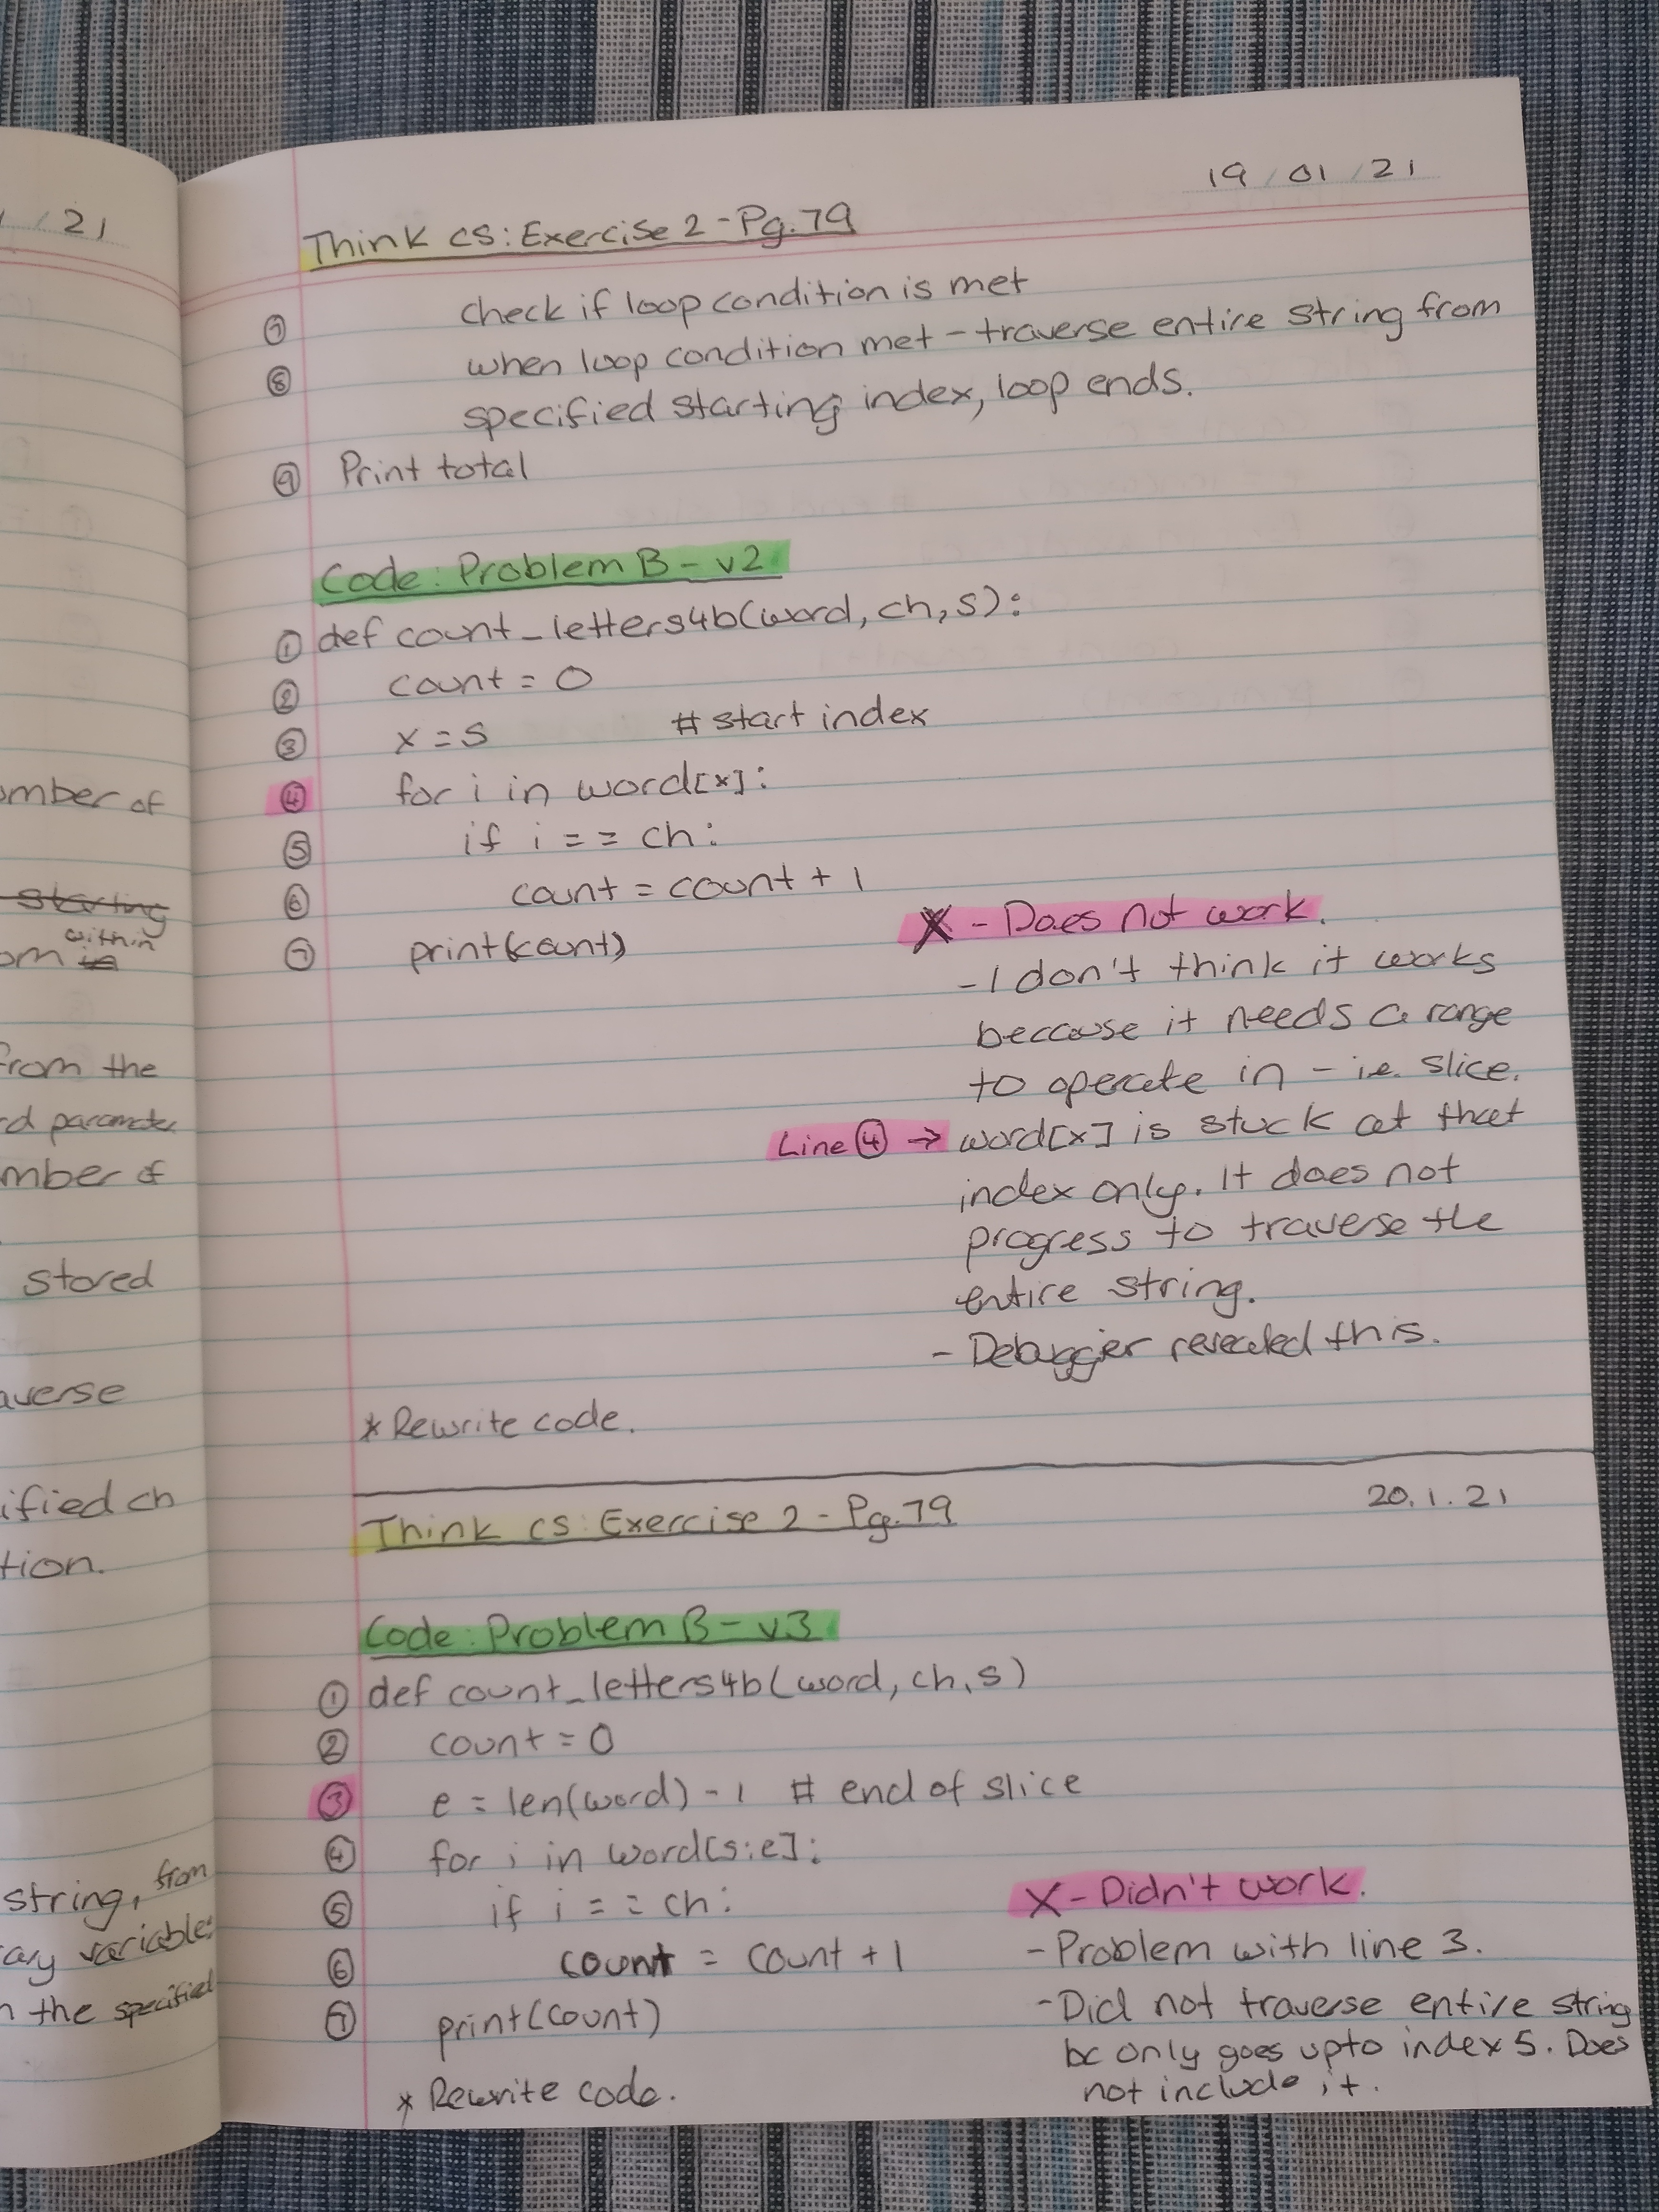 / 21
omber of
starting
within
om is
from the
rd parameter
mber of
stored
averse
ified ch
tion.
string, from
ary variable
n the specified
19/01/21
Think CS: Exercise 2 - Pg. 79
⑦ check if loop condition is met
⑧ when loop condition met - traverse entire string from
specified starting index, loop ends.
⑨ Print total
Code: Problem B - v2
① def count_letters4b(word, ch, s):
② count = 0
③ x = s # start index
④ for i in word[x]:
⑤ if i == ch:
⑥ count = count + 1
⑦ print(count)
X - Does not work.
- I don't think it works
because it needs a range
to operate in - i.e. slice.
Line ④ → word[x] is stuck at that
index only. It does not
progress to traverse the
entire string.
- Debugger revealed this.
* Rewrite code.
20.1.21
Think CS: Exercise 2 - Pg. 79
Code: Problem B - v3
① def count_letters4b(word, ch, s)
② count = 0
③ e = len(word) - 1 # end of slice
④ for i in word[s:e]:
⑤ if i == ch:
⑥ count = count + 1
⑦ print(count)
X - Didn't work.
- Problem with line 3.
- Did not traverse entire string
bc only goes upto index 5. Does
not include it.
* Rewrite code.